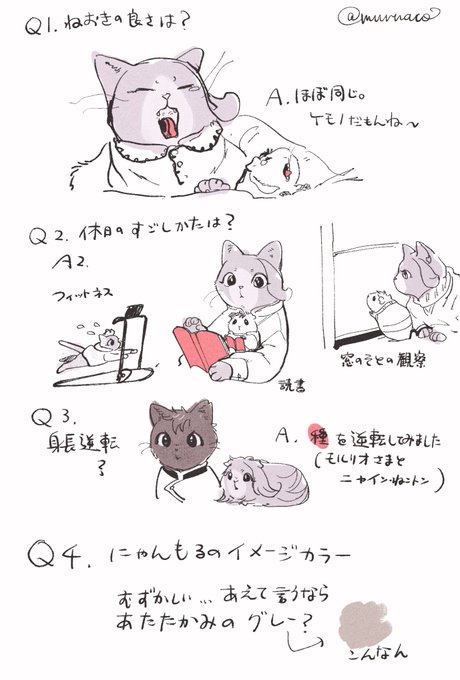 @muruaco
Q1. ねおきの良さは?
A. ほぼ同じ。
ケモノだもんね〜
Q2. 休日のすごしかたは?
A2.
フィットネス
読書
窓のそとの観察
Q3.
身長逆転
?
A. 種を逆転してみました
(モルリオさまと
ニャイン・ねこトン)
Q4. にゃんもるのイメージカラー
むずかしい... あえて言うなら
あたたかみの グレー?
こんなん